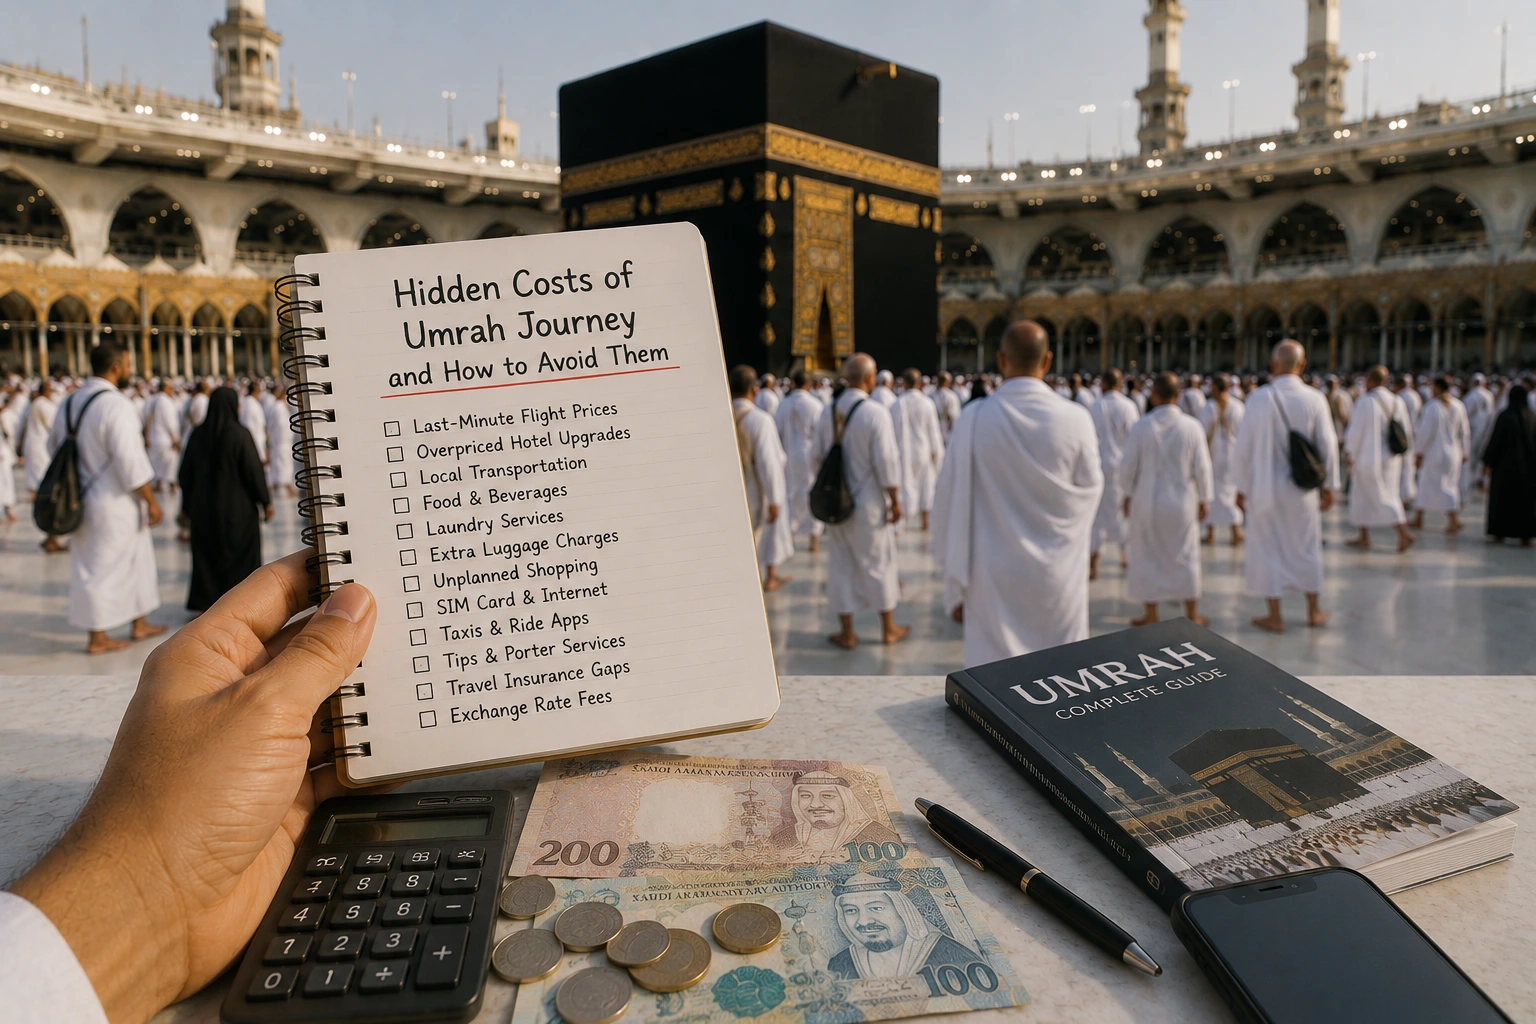 Hidden Costs of
Umrah Journey
and How to Avoid Them
Last-Minute Flight Prices
Overpriced Hotel Upgrades
Local Transportation
Food & Beverages
Laundry Services
Extra Luggage Charges
Unplanned Shopping
SIM Card & Internet
Taxis & Ride Apps
Tips & Porter Services
Travel Insurance Gaps
Exchange Rate Fees
UMRAH
COMPLETE GUIDE
200
100
SAUDI ARABIAN
100